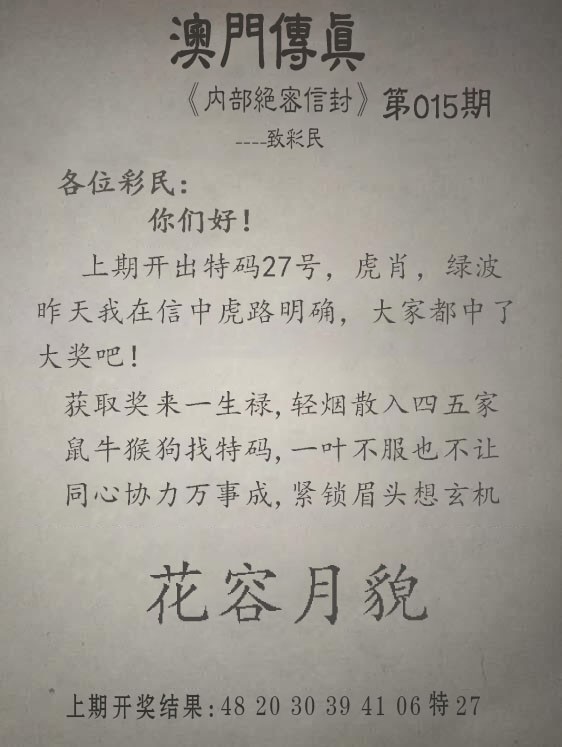 澳門傳眞
《内部絕密信封》第015期
----致彩民
各位彩民：
你们好！
上期开出特码27号，虎肖，绿波
昨天我在信中虎路明确，大家都中了
大奖吧！
获取奖来一生禄,轻烟散入四五家
鼠牛猴狗找特码,一叶不服也不让
同心协力万事成,紧锁眉头想玄机
花容月貌
上期开奖结果:48 20 30 39 41 06 特 27